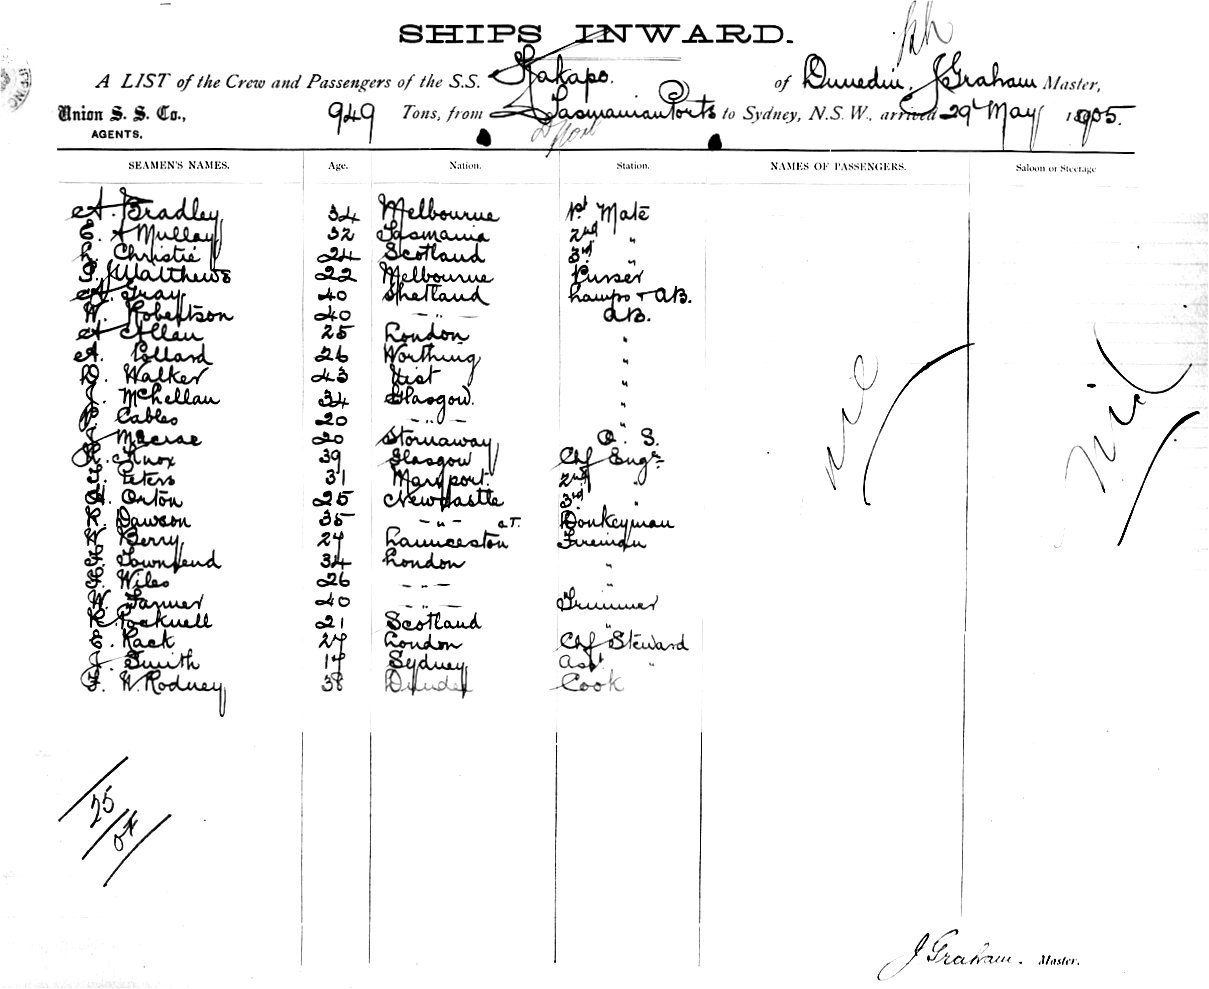 SHIPS INWARD.
A LIST of the Crew and Passengers of the S.S. Kakapo. of Dunedin, J Graham Master,
Union S. S. Co., 949 Tons, from Tasmanian Ports to Sydney, N.S.W., arrived 29th May 1905.
AGENTS.
SEAMEN'S NAMES. Age. Nation. Station. NAMES OF PASSENGERS. Saloon or Steerage
A. Bradley 34 Melbourne 1st Mate
E. A Mullay 32 Tasmania 2nd "
L. Christie 24 Scotland 3rd "
S. J Matthews 22 Melbourne Purser
A. Gray 40 Shetland Lamps + AB.
W. Robertson 40 — " — AB.
A Allan 25 London "
A. Pollard 26 Worthing "
D. Walker 43 Uist "
J. McLellan 34 Glasgow. "
P. Cables 20 — " — "
J. Macrae 20 Stornaway O. S.
R. Knox 39 Glasgow Chf Engr
Peters 31 Maryport. 2nd "
H. Orton 25 Newcastle 3rd "
R. Dawson 35 — " — Donkeyman
W Berry 27 Launceston Fireman
F. Townsend 34 London "
F. Wiles 26 — " — "
W. Farmer 40 — " — Trimmer
R. Pocknell 21 Scotland "
E. Rack 27 London Chf Steward
J. Smith 17 Sydney Asst "
F. W. Rodney 38 Dundee Cook
nil
25
J Graham. Master.